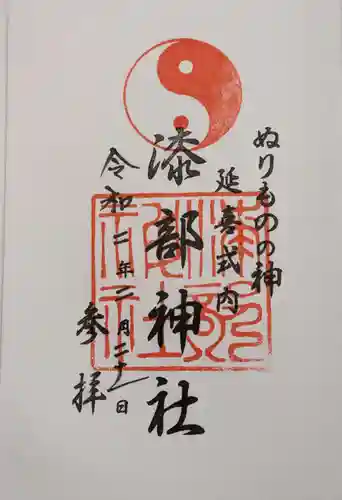 ぬりものの神
延喜式内
漆部神社
令和二年二月二十一日
参拝